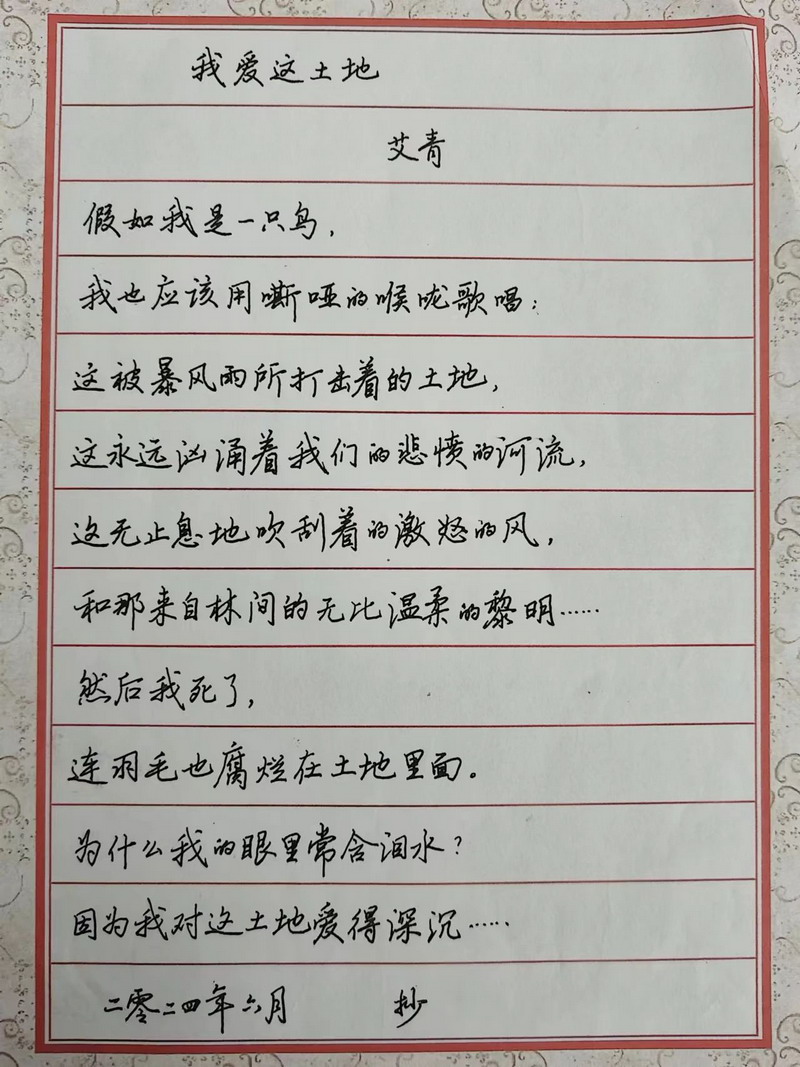 我爱这土地
艾青
假如我是一只鸟，
我也应该用嘶哑的喉咙歌唱：
这被暴风雨所打击着的土地，
这永远汹涌着我们的悲愤的河流，
这无止息地吹刮着的激怒的风，
和那来自林间的无比温柔的黎明……
然后我死了，
连羽毛也腐烂在土地里面。
为什么我的眼里常含泪水？
因为我对这土地爱得深沉……
二零二四年六月 抄